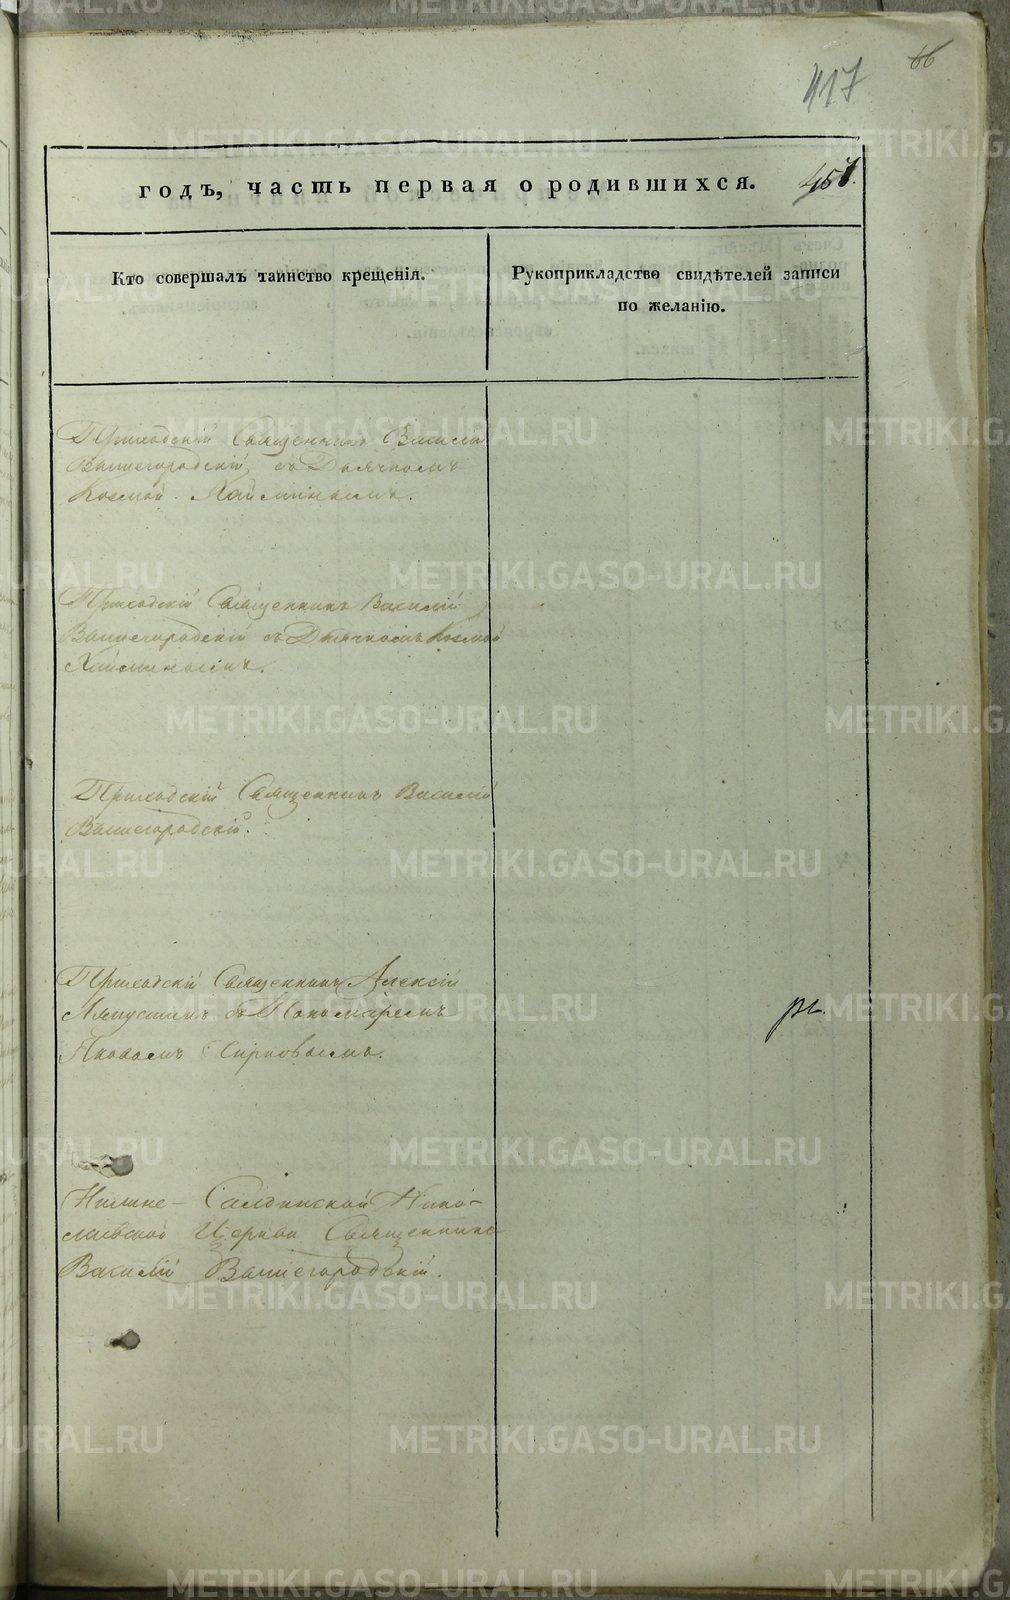 66
417
годъ, часть первая о родившихся.
Кто совершалъ таинство крещенія.
Рукоприкладство свидѣтелей записи
по желанію.
Приходскій Священникъ Василій
Вышегородскій, съ Дьячкомъ
Козмой Хайминымъ.
Приходскій Священникъ Василій
Вышегородскій съ Дьячкомъ Козмой
Хайминымъ.
Приходскій Священникъ Василій
Вышегородскій.
Приходскій Священникъ Алексій
съ Пономаремъ
Нижне-Салдинской Нико-
лаевской Церкви Священникъ
Василій Вышегородскій.
METRIKI.GASO-URAL.RU